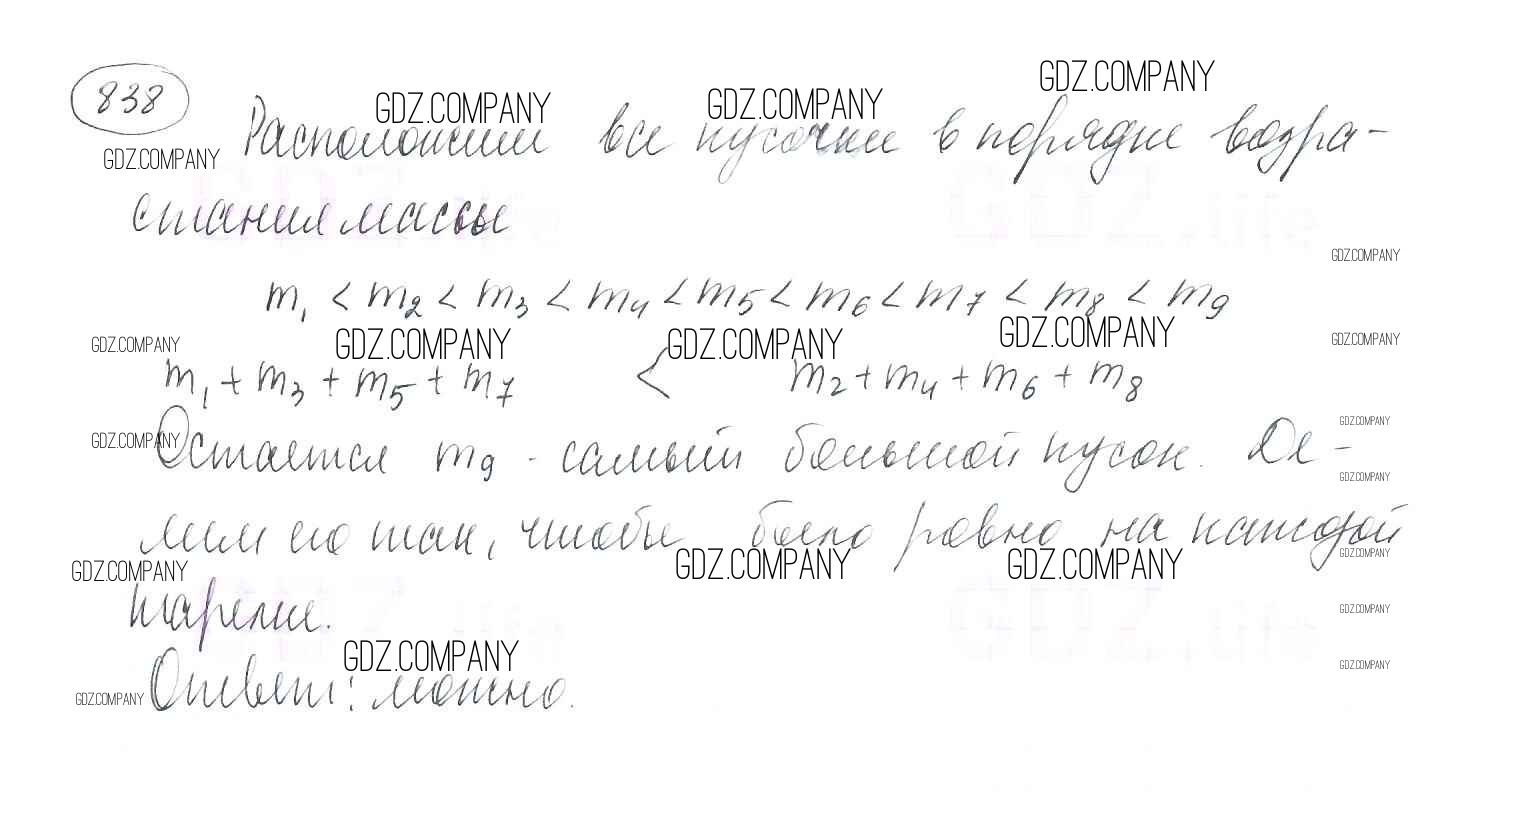 838
Расположим все кусочки в порядке возра-
стания массы
m₁ < m₂ < m₃ < m₄ < m₅ < m₆ < m₇ < m₈ < m₉
m₁ + m₃ + m₅ + m₇ < m₂ + m₄ + m₆ + m₈
Остается m₉ - самый большой кусок. Де-
лим его так, чтобы было равно на каждой
тарелке.
Ответ: можно.
GDZ.COMPANY GDZ.COMPANY GDZ.COMPANY
GDZ.COMPANY
GDZ.life GDZ.life
GDZ.COMPANY
GDZ.COMPANY GDZ.COMPANY GDZ.COMPANY GDZ.COMPANY GDZ.COMPANY
GDZ.COMPANY GDZ.COMPANY
GDZ.COMPANY
GDZ.COMPANY GDZ.COMPANY GDZ.COMPANY GDZ.COMPANY
GDZ.life GDZ.life
GDZ.COMPANY
GDZ.COMPANY GDZ.COMPANY
GDZ.COMPANY